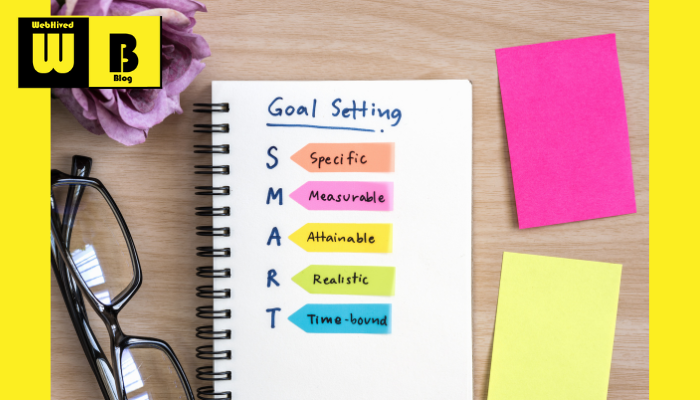 WebHived
W B
Blog
Goal Setting
S Specific
M Measurable
A Attainable
R Realistic
T Time-bound